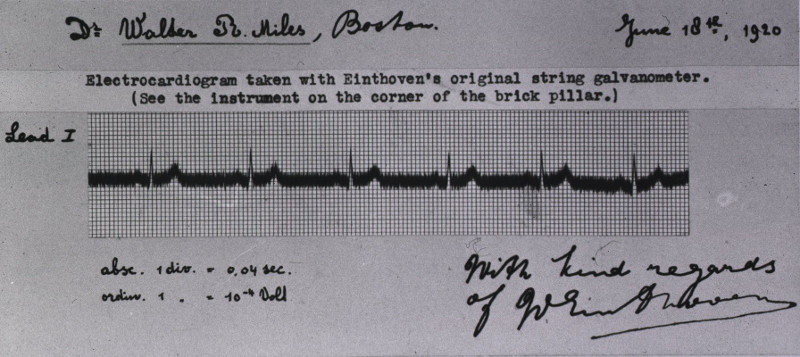 Dr Walter R. Miles, Boston.
June 18th, 1920
Electrocardiogram taken with Einthoven's original string galvanometer.
(See the instrument on the corner of the brick pillar.)
Lead I
absc. 1 div. = 0,04 sec.
ordin. 1 „ = 10⁻⁴ Volt
With kind regards
of W Einthoven